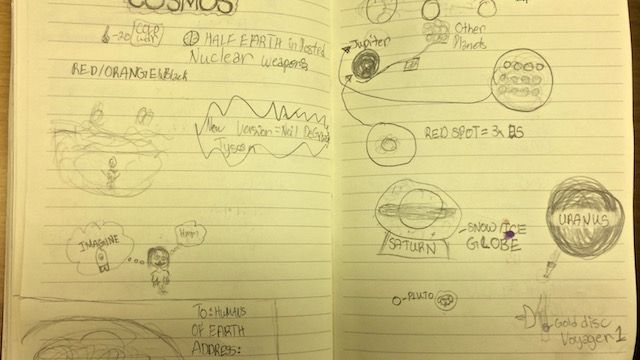 COSMOS
-20
COLD WAR
① HALF EARTH in
Nuclear weapons
RED/ORANGE/Black
New Version=Neil DeGrasse
Tyson
IMAGINE
Hmm
TO: HUMANS
OF EARTH
ADDRESS:
Jupiter
Other
Planets
RED SPOT = 3x
SATURN
-SNOW/ICE
GLOBE
URANUS
PLUTO
Gold disc
Voyager 1